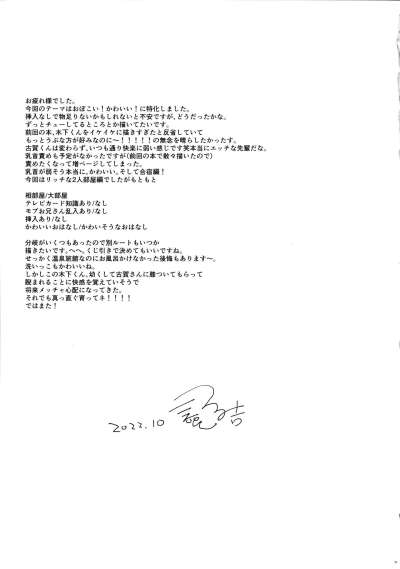 お疲れ様でした。
今回のテーマはおぼこい！かわいい！に特化しました。
挿入なしで物足りないかもしれないと不安ですが、どうだったかな。
ずっとチューしてるところとか描いてたいです。
前回の本、木下くんをイケイケに描きすぎたと反省していて
もっとうぶな方が好みなのに～！！！！！の無念を晴らしたかったす。
古賀くんは変わらず、いつも通り快楽に弱い感じです笑本当にエッチな先輩だな。
乳首責めも予定がなかったですが（前回の本で散々描いたので）
責めたくなって増ページしてしまった。
乳首が弱そう本当に。かわいい。そして合宿編！
今回はリッチな2人部屋編でしたがもともと
相部屋/大部屋
テレビカード知識あり/なし
モブお兄さん乱入あり/なし
挿入あり/なし
かわいいおはなし/かわいそうなおはなし
分岐がいくつもあったので別ルートもいつか
描きたいです。へへ。くじ引きで決めてもいいですね。
せっかく温泉旅館なのにお風呂かけなかった後悔もあります～。
洗いっこもかわいいね。
しかしこの木下くん、幼くして古賀さんに筋ついてもらって
睨まれることに快感を覚えていそうで
将来メッチャ心配になってきた。
それでも真っ直ぐ育ってネ！！！！
ではまた！
2022.10